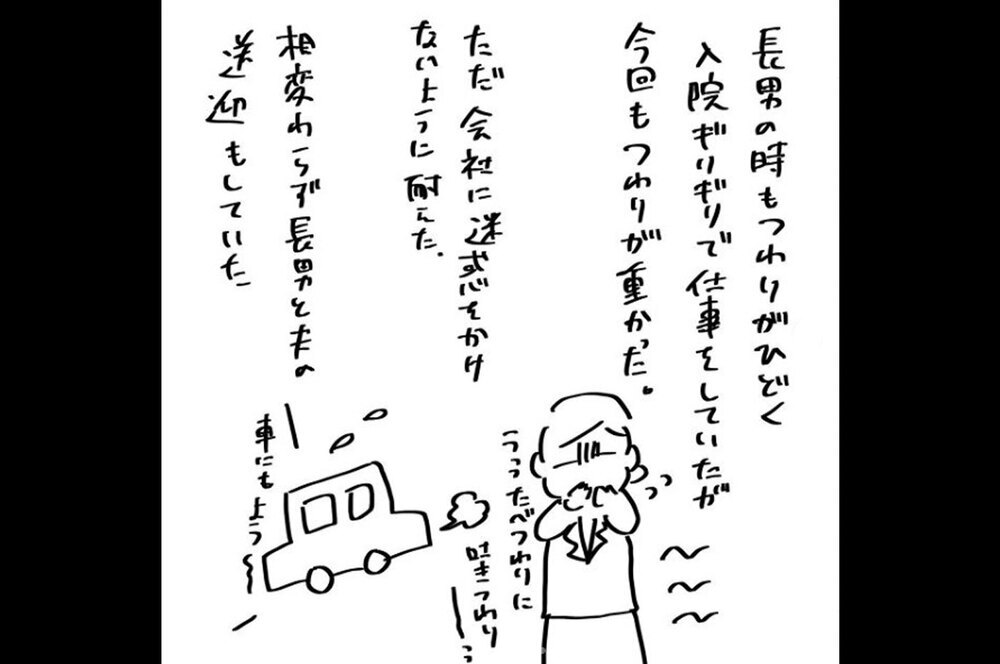 長男の時もつわりがひどく
入院ギリギリで仕事をしていたが
今回もつわりが重かった。
ただ会社に迷惑をかけ
ないように耐えた.
相変わらず長男と夫の
送迎もしていた
うっったべつわりに
吐きつわり
車にもよう〜